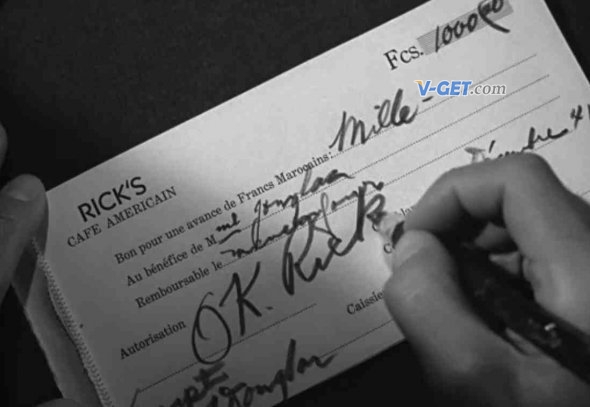 Fcs. 1000 00
V-GET.com
RICK'S
CAFE AMERICAIN
Bon pour une avance de Francs Marocains: Mille -
Au bénéfice de M
Remboursable le
Autorisation OK. Rick
Caissie